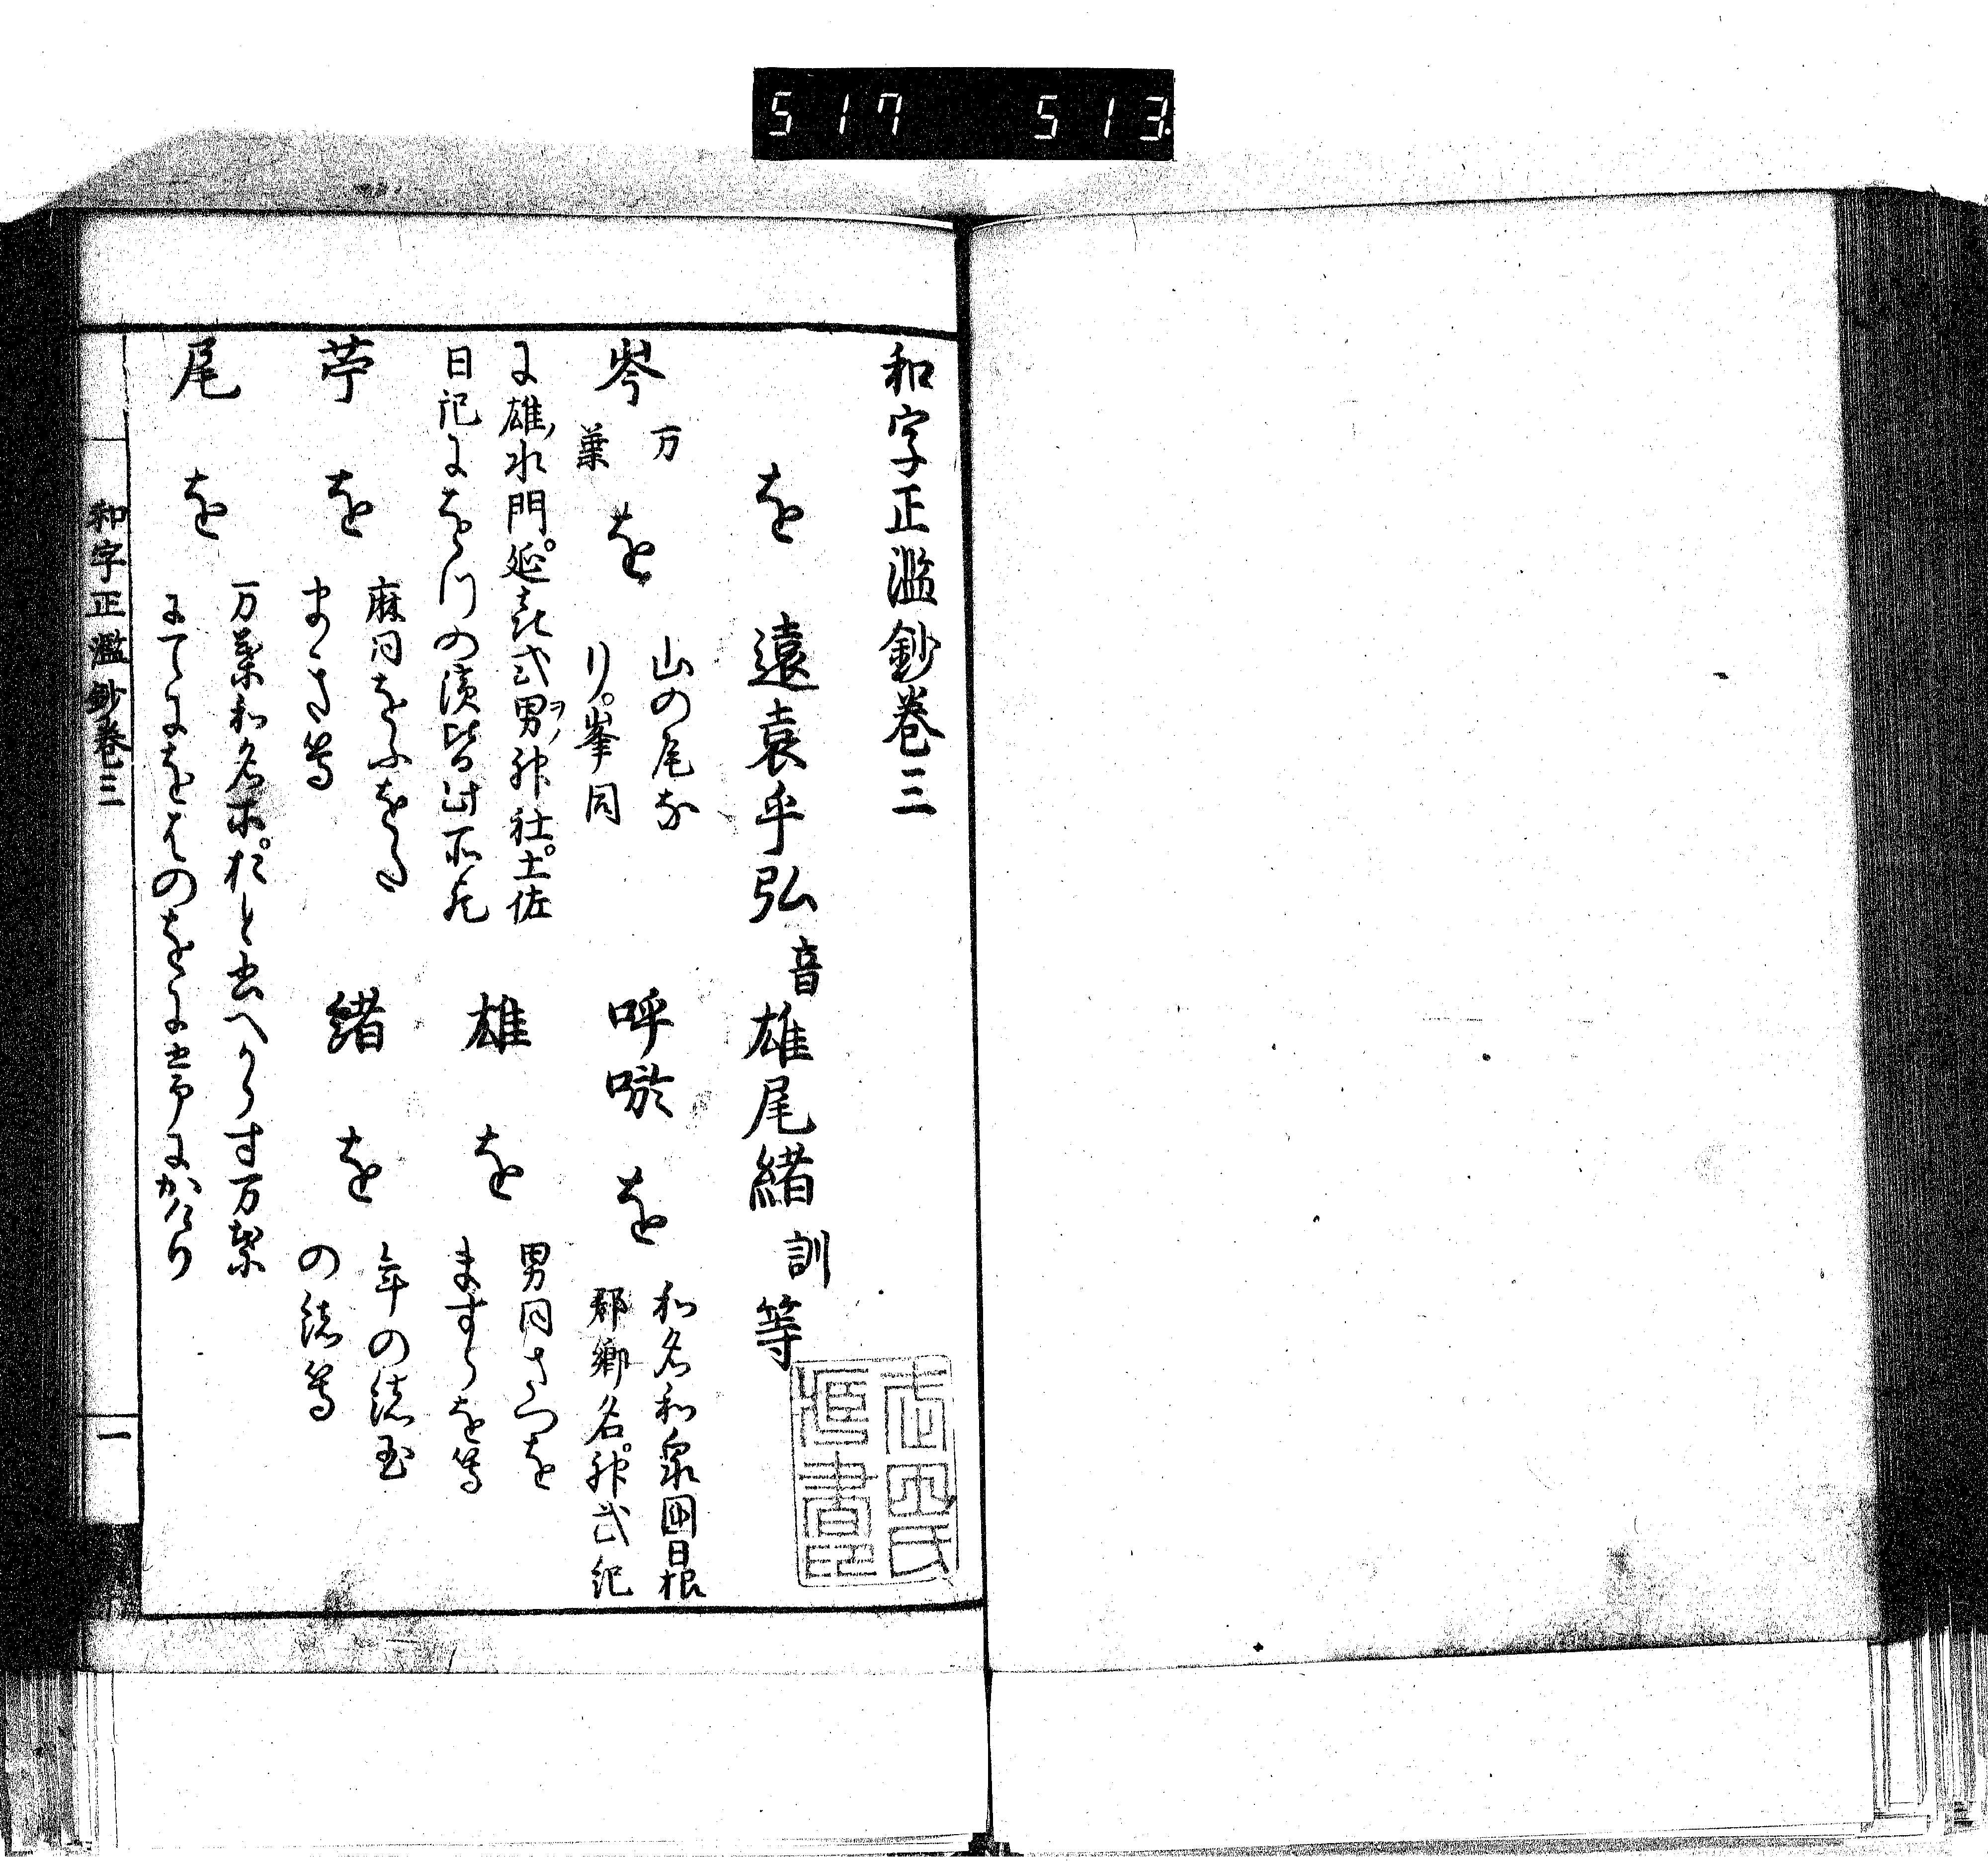 517 513
和字正濫鈔巻三
を 遠袁乎弘音雄尾緒訓等
岑万葉 を 山の尾な
り。峯同
呼唹 を 和名和泉國日根
郡郷名。神武紀
に雄水門。延喜式男神社。土佐
ヲノ
日記にをつの濱皆此所也
雄 を 男同さつを
ますらを等
苧 を 麻同をふをかせ
まさ等
緒 を 年の緒玉
の緒等
尾 を 万葉和名ホ。おと書へからす万葉
にてにをはのをに常にかけり
和字正濫鈔巻三
一